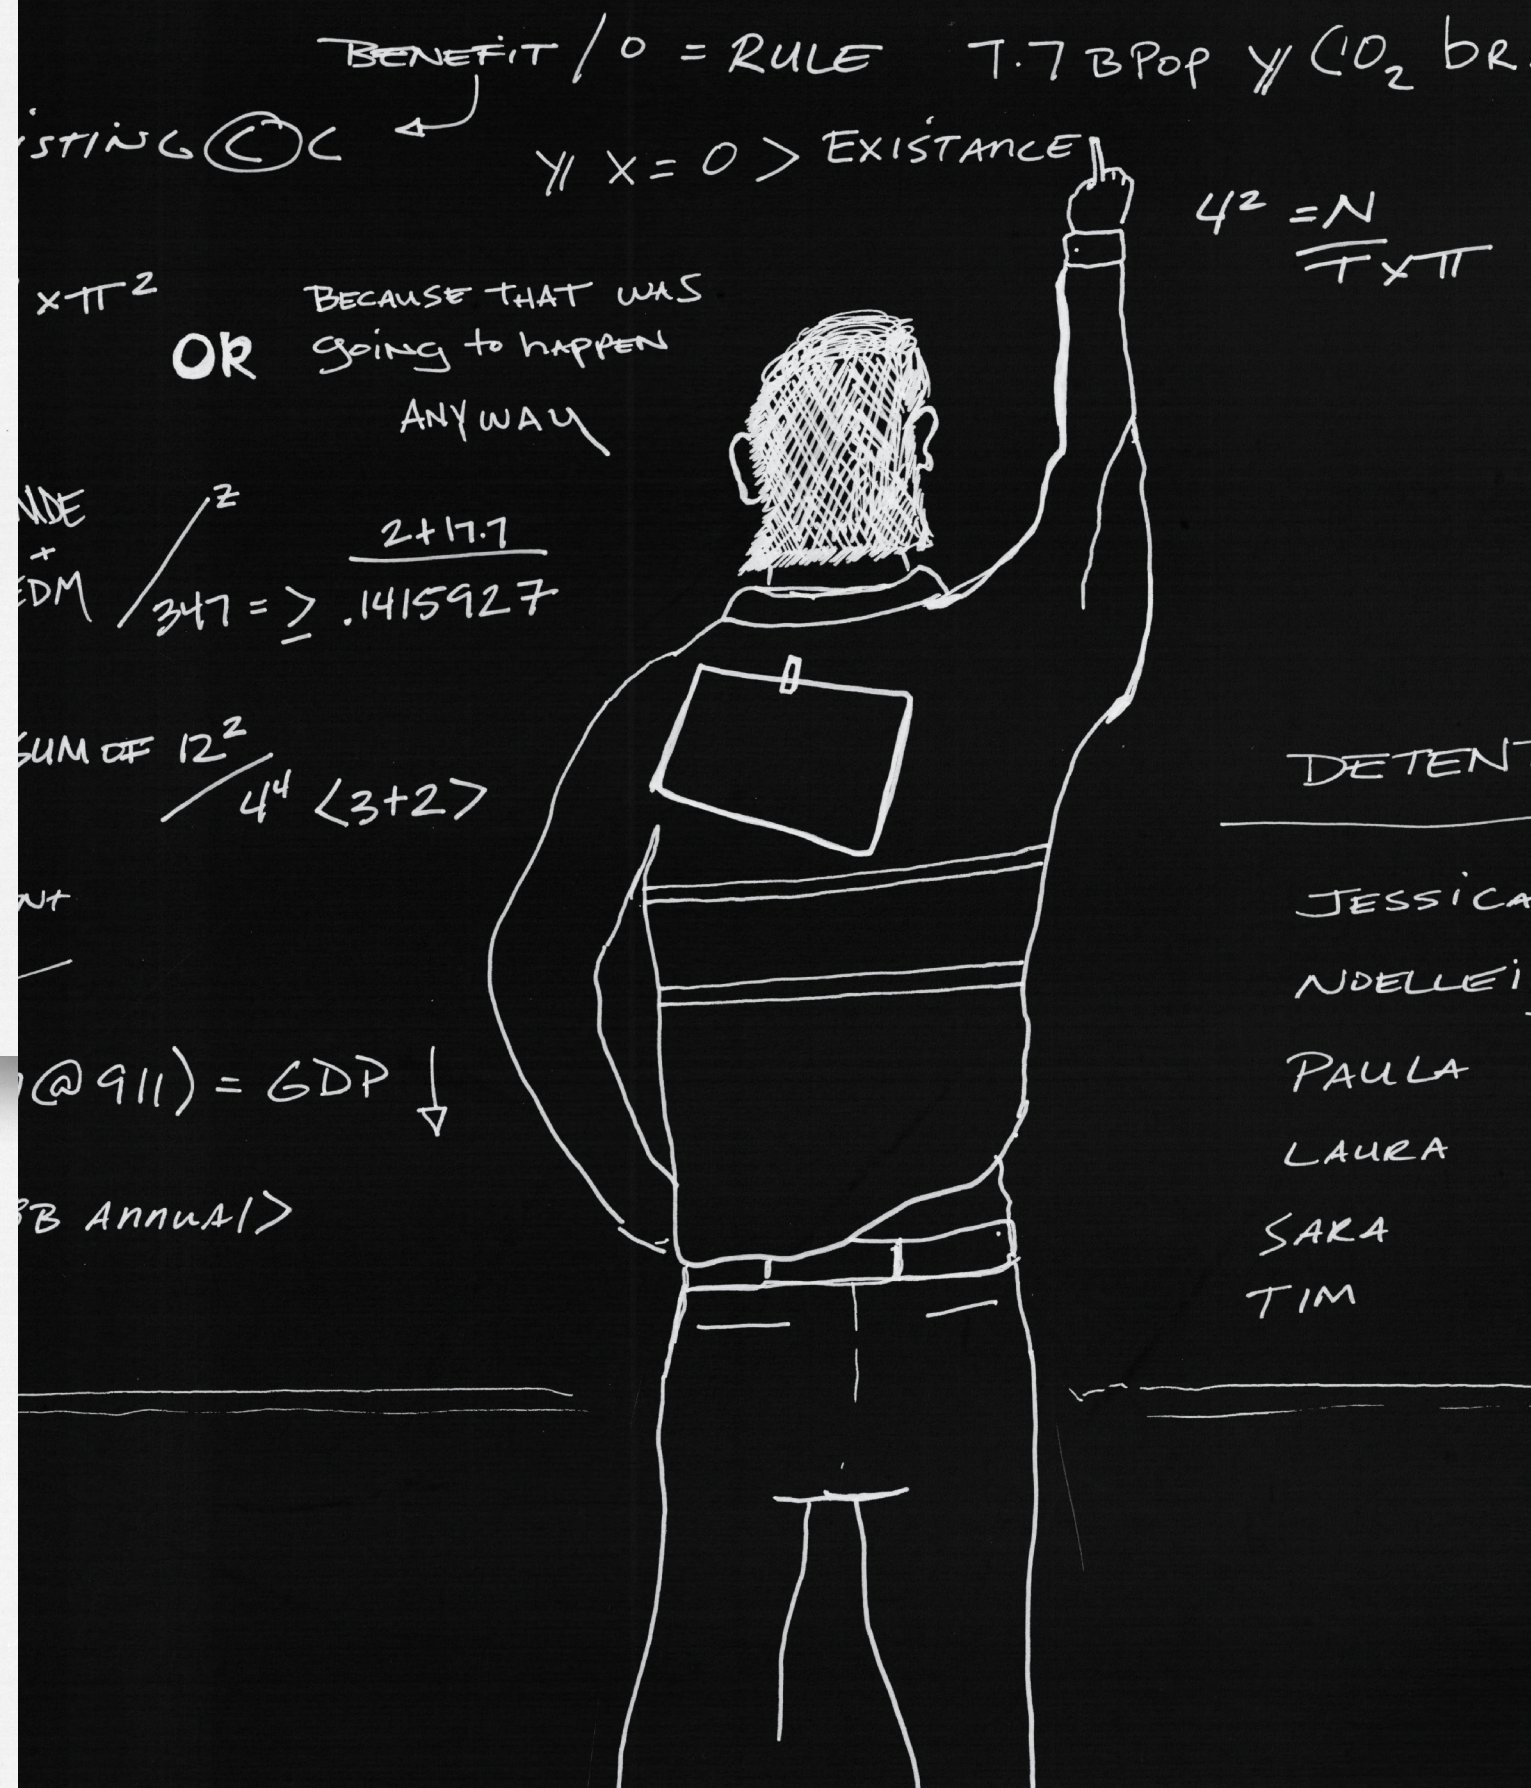 BENEFIT / 0 = RULE 7.7 BPOP y CO₂ bR.
ISTING © C
y x = 0 > EXISTANCE
4² = N
T x π
x π² OR BECAUSE THAT WAS
going to hAPPEN
ANYWAY
+
EDM
z
347 = ≥
2+17.7
.1415927
SUM OF 12²
4⁴ <3+2>
NT
@911) = GDP ↓
B ANNUAl>
DETENT
JESSICA
NOELLEi
PAULA
LAURA
SARA
TIM